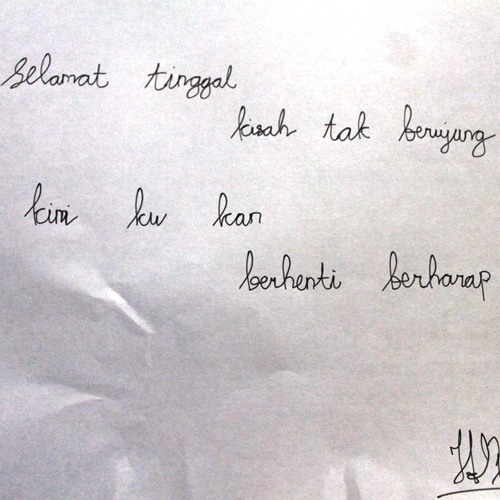 Selamat tinggal
kisah tak berujung
kini ku kan
berhenti berharap